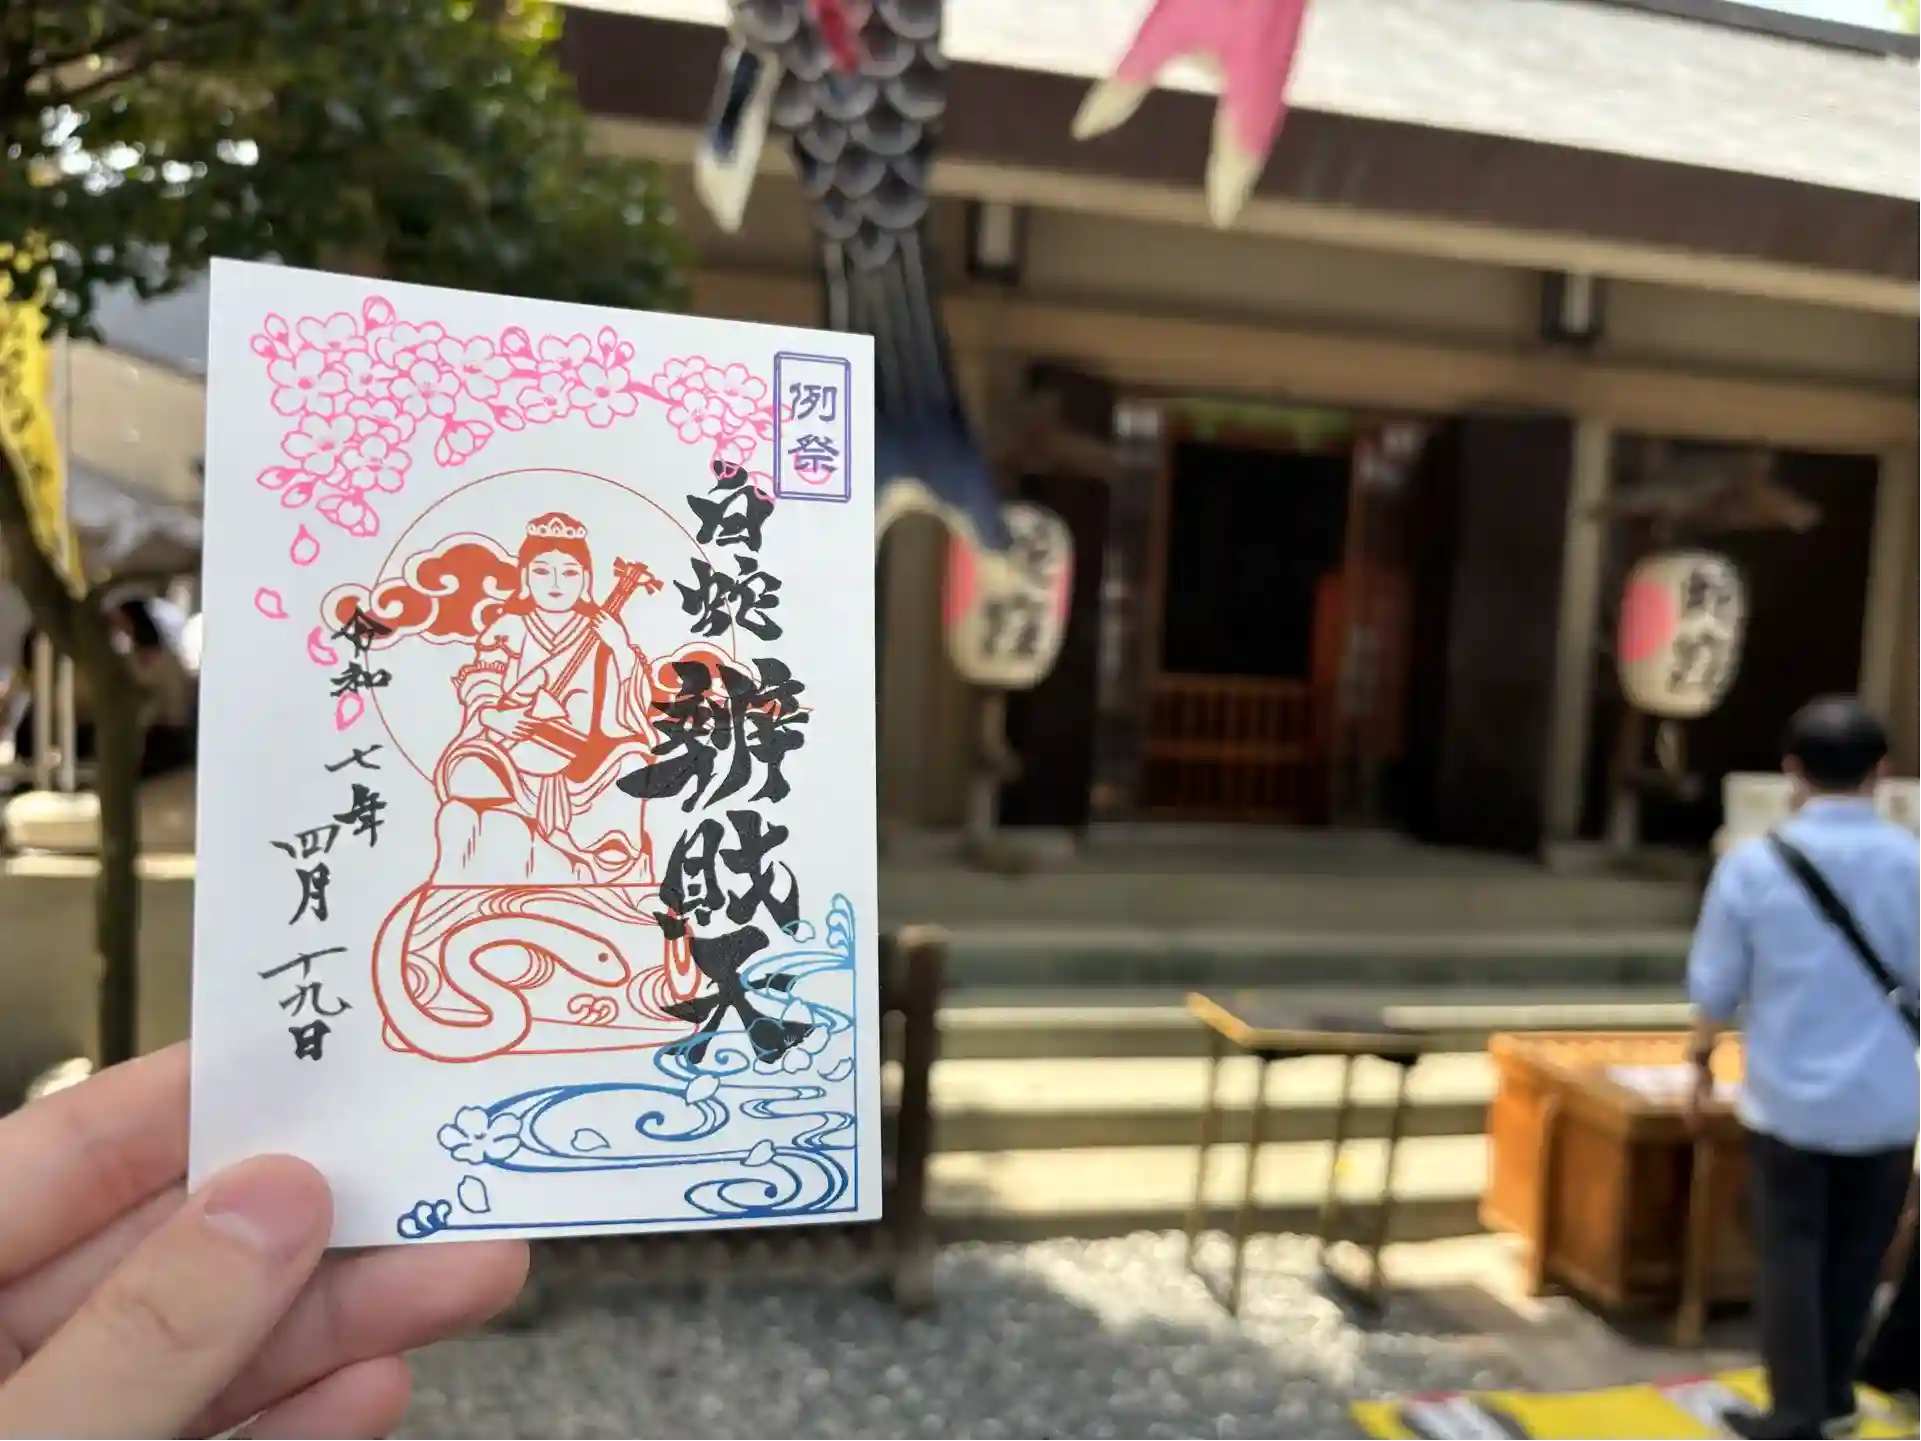 例祭
白蛇辨財天
令和七年
四月十九日